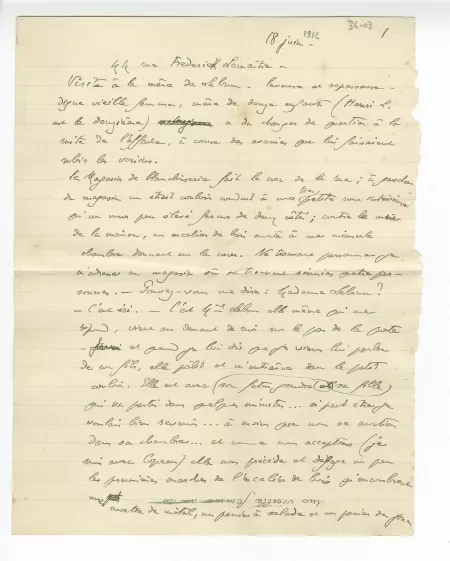 36-03 1
18 juin 1912 -
44 rue Frederick Lemaître -
Visite à la mère de Lebrun. laveuse et repasseuse -
digne vieille femme, mère de douze enfants (Henri L.
est le douzième) a du changer de quartier à la
suite de l'affaire, à cause des avanies que lui faisaient
subir les voisins.
Le Magasin de blanchisserie fait le coin de la rue ; à
du magasin un étroit couloir conduit à une très petite cour intérieure
qu'un mur peu élevé ferme de deux côtés ; contre le mur
de la maison, un escalier de bois monte à une minuscule
chambre donnant sur la cour. Ne trouvant personne je
m'adresse au magasin où se trouvent réunies quatre per-
sonnes. — Pouvez-vous me dire : Madame Lebrun ?
— C'est ici. — C'est Mme Lebrun elle même qui me
répond, vient au devant de moi sur le pas de la porte
- et quand je lui dis que je viens lui parler
de son fils, elle pâlit et m'entraîne dans le petit
couloir. Elle est avec (son futur gendre et sa fille)
qui va partir dans quelques minutes... si peut être je
voulais bien revenir... à moins que nous ne montions
dans sa chambre... et comme nous acceptons (je
suis avec Copeau) elle nous précède et dégage un peu
les premières marches de l'escalier de bois qu'encombraient
une
cuvette de métal, un panier à salade et un panier